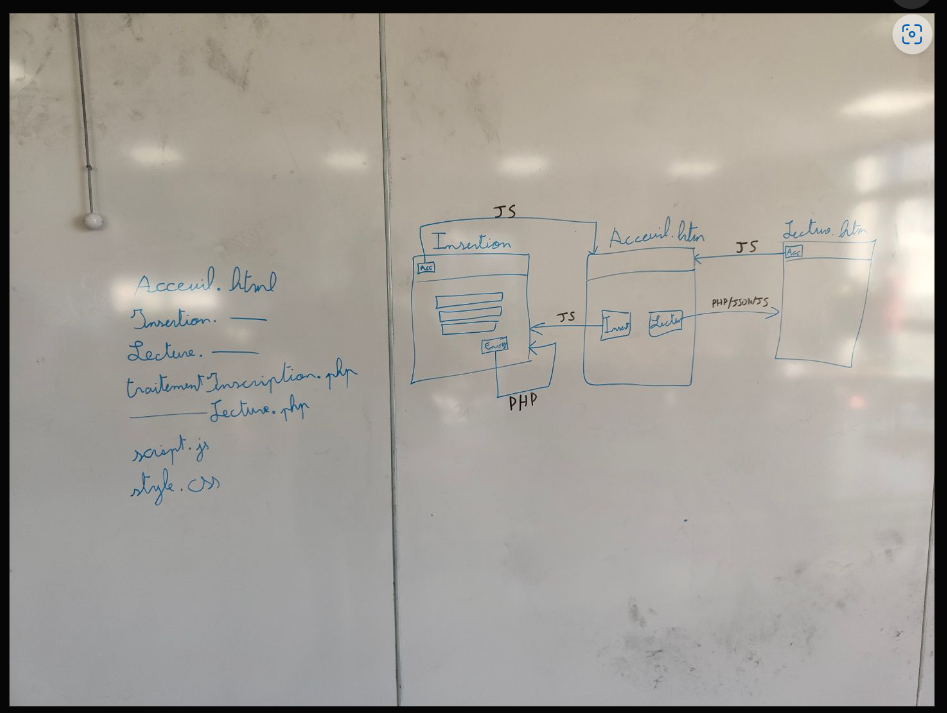 Acceuil.html
Insertion. ——
Lecture. ——
traitementInscription.php
—— Lecture.php
script.js
style.css
JS
Insertion
Acc
Envoy
PHP
JS
Acceuil.htm
Insert
Lectur
JS
PHP/JSON/JS
Lecture.htm
Acc